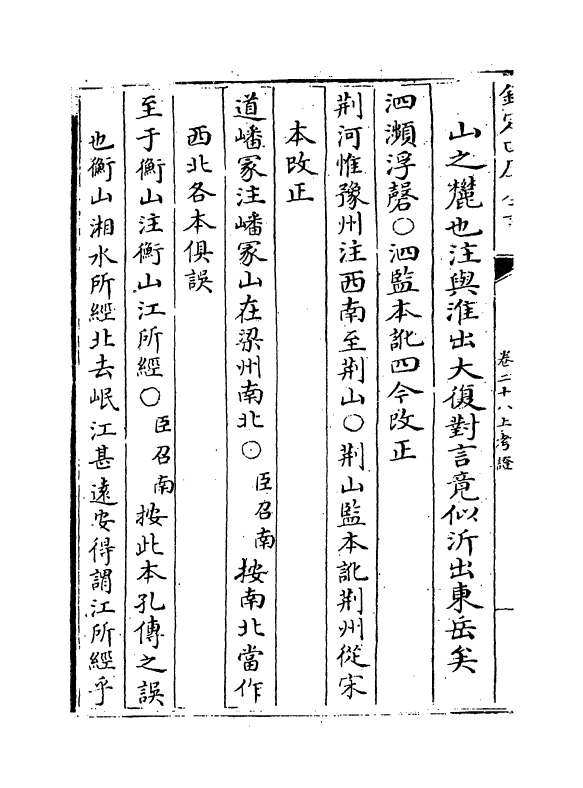 欽定四庫全書
卷二十八上考證
山之麓也注與淮出大復對言竟似沂出東岳矣
泗瀕浮磬○泗監本訛四今改正
荆河惟豫州注西南至荆山○荆山監本訛荆州從宋
本改正
道嶓冢注嶓冢山在梁州南北○臣召南按南北當作
西北各本俱誤
至于衡山注衡山江所經○臣召南按此本孔傳之誤
也衡山湘水所經北去岷江甚遠安得謂江所經乎